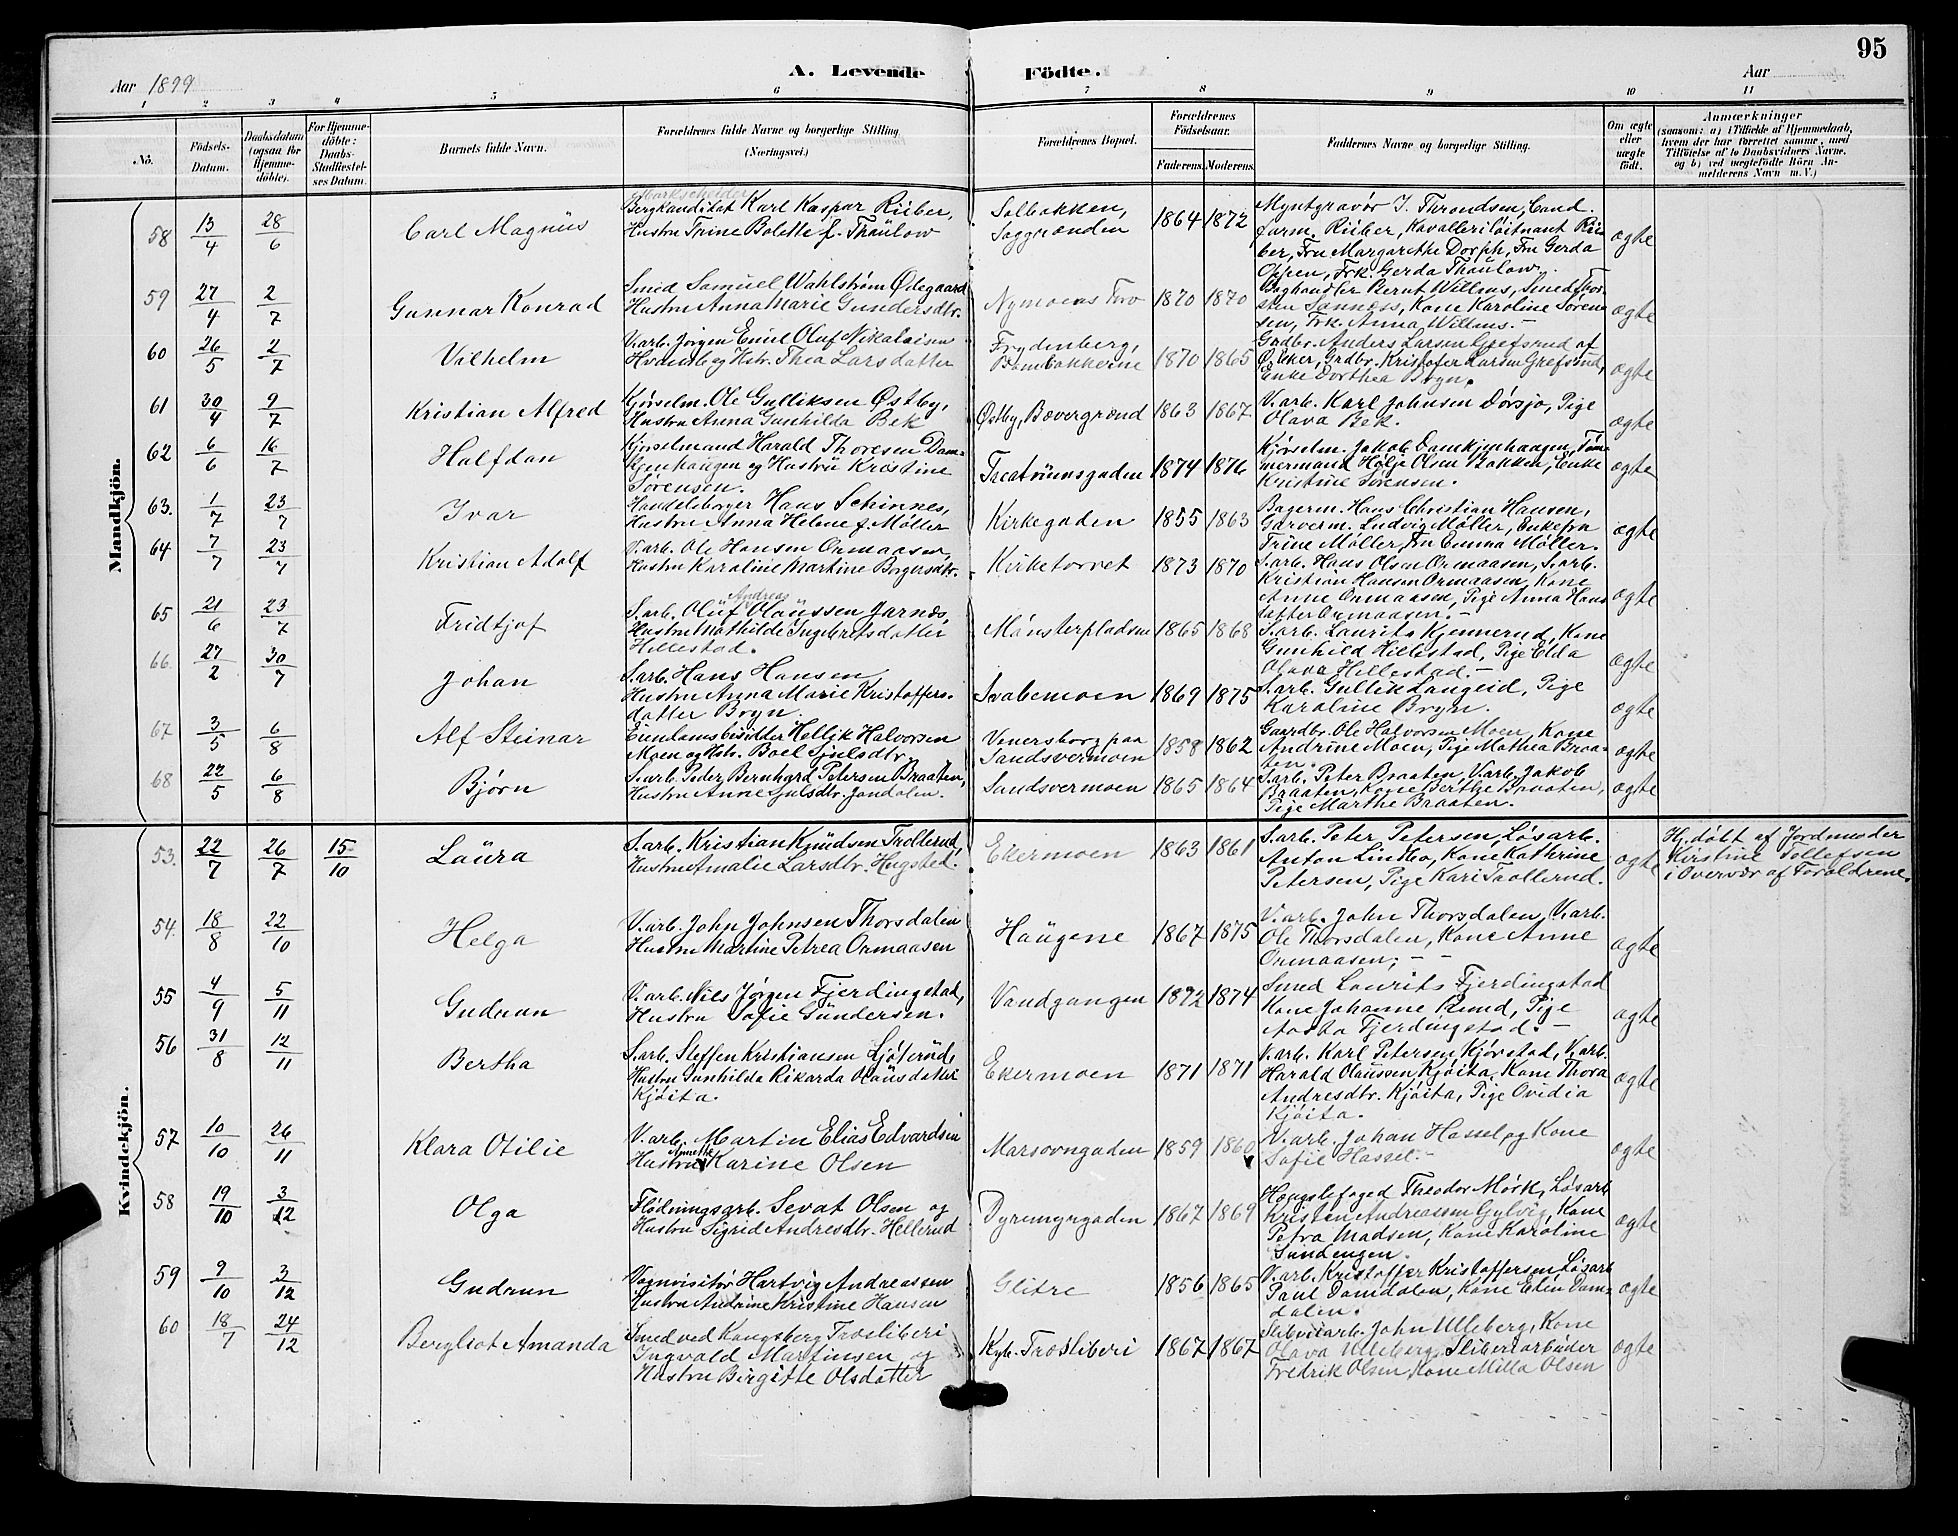 95
Aar 1899
A. Levende Födte.
Aar
1 2 3 4 5 6 7 8 9 10 11
No.
Födsels-Datum.
Daabsdatum (ogsaa for Hjemme-döbte).
For Hjemme-döbte: Daabs-Stadfæstel-ses Datum.
Barnets fulde Navn.
Forældrenes fulde Navne og borgerlige Stilling. (Næringsvei.)
Forældrenes Bopæl.
Forældrenes Födselsaar.
Faderens. Moderens.
Faddernes Navne og borgerlige Stilling.
Om ægte eller uægte født.
Anmærkninger
(saasom: a) i Tilfælde af Hjemmedaab,
hvem der har forrettet samme, med
Tilføielse af to Daabsvidners Navne,
og b) ved uægtefødte Börn An-
melderens Navn m. V.)
Mandkjön.
58 13/4 28/6 Carl Magnus
Markscheider
Bergkandidat Karl Kaspar Riiber,
Hustru Trine Bolette f. Thaulow
Solbakken,
Saggrænden
1864 1872
Myntgravør I. Throndsen, Cand.
farm. Riiber, Kavalleriløitnant Rii-
ber, Fru Margarethe Dorph, Fru Gerda
Oppen, Frk. Gerda Thaulow.
ægte
59 27/4 2/7 Gunnar Konrad
Smed Samuel Wahlstrøm Ødegaard
Hustru Anna Marie Gundersdtr.
Nymoens Torv
1870 1870
Boghandler Bernt Willms, Smed Tor-
sten Sannæss, Kone Karoline Søren-
sen, Frk. Anna Willms. -
ægte
60 26/5 2/7 Vilhelm
V.arb. Jørgen Emil Oluf Nikolaisen
og Hstr. Thea Larsdatter
Frydenberg,
1870 1865
Gndbr. Anders Larsen Grefsrud af
Eker, Grdbr. Kristofer Larsen Grefsrud,
Enke Dorthea Bryn.
ægte
61 30/4 9/7 Kristian Alfred
Kjørselm. Ole Gulliksen Østby,
Hustru Anna Gunhilda Bek
Østby, Bævergrænd
1863 1867
V.arb. Karl Johnsen Dørsjo, Pige
Olava Bek.
ægte
62 6/6 16/7 Halfdan
Kjørselmand Harald Thoresen Dam-
kjenhaugen og Hustru Kristine
Sørensen.
Tractrumsgaden
1874 1876
Kjørselm. Jakob Damkjenhaugen, Tøm-
mermand Helje Olsen Bakken, Enke
Kristine Sørensen.
ægte
63. 1/7 23/7 Ivar
Handelsborger Hans Schinnes,
Hustru Anna Helene f. Møller
Kirkegaden
1855 1863
Bagerm. Hans Christian Hansen,
Garverm. Ludvig Møller, Enkefru
Trine Møller, Fru Emma Møller.
ægte
64 7/7 23/7 Kristian Adolf
V.arb. Ole Hansen Ormaasen,
Hustru Karoline Martine Borgersdtr.
Kirketorvet
1873 1870
S.arb. Hans Olsen Ormaasen, S.arb.
Kristian Hansen Ormaasen, Kone
Anne Ormaasen, Pige Anna Hans-
datter Ormaasen. -
ægte
65 21/6 23/7 Fridtjof
Andreas
S.arb. Oluf Olaussen Jarnæs,
Hustru Mathilde Ingebretsdatter
Hillestad.
Mønsterpladsen
1865 1868
S.arb. Laurits Kjennerud, Kone
Gunhild Hillestad, Pige Elda
Olava Hillestad. -
ægte
66. 27/2 30/7 Johan
S.arb. Hans Hansen
Hustru Anna Marie Kristoffers-
datter Bryn.
Svabemoen
1869 1875
S.arb. Gullik Langeid, Pige
Karoline Bryn.
ægte
67 3/5 6/8 Alf Steinar
Eiendomsbesidder Hellik Halvorsen
Moen og Hstr. Boel Sjulsdtr.
Venersborg paa
Sandsvermoen
1858 1862
Gaardbr. Ole Halvorsen Moen, Kone
Andrine Moen, Pige Mathea Braa-
ten.
ægte
68 22/5 6/8 Bjørn
S.arb. Peder Bernhard Petersen Braaten,
Hustru Anne Sjulsdtr. Jondalen.
Sandsvermoen
1865 1864
S.arb. Peter Braaten, V.arb. Jakob
Braaten, Kone Berthe Braaten,
Pige Marthe Braaten.
ægte
Kvindekjön.
53. 22/7 26/7 15/10 Laura
S.arb. Kristian Knudsen Trollerud,
Hustru Amalie Larsdtr. Hugsted.
Ekermoen
1863 1861
S.arb. Peter Petersen, Løsarb.
Anton Lindbo, Kone Kathrine
Petersen, Pige Kari Trollerud.
ægte
Hj.døbt af Jordmoder
Kirstine Tollefsen
i Overvær af Forældrene.
54. 18/8 22/10 Helga
V.arb. John Johnsen Thorsdalen
Hustru Martine Petrea Ormaasen
Haugene
1867 1875
V.arb. John Thorsdalen, V.arb.
Ole Thorsdalen, Kone Anne
Ormaasen; - -
ægte
55 4/9 5/11 Gudrun
V.arb. Nils Jørgen Fjerdingstad,
Hustru Sofie Gundersen.
Vandgangen
1872 1874
Smed Laurits Fjerdingstad
Kone Johanne Ruud, Pige
Aasta Fjerdingstad. -
ægte
56 31/8 12/11 Bertha
S.arb. Steffen Kristiansen Ljøterud,
Hustru Gunhilda Rikarda Olausdatter
Kjøita.
Ekermoen
1871 1871
V.arb. Karl Petersen Kjørstad, V.arb.
Harald Olaussen Kjøita, Kone Thora
Andresdtr. Kjøita, Pige Ovidia
Kjøita.
ægte
57 10/10 26/11 Klara Otilie
V.arb. Martin Elias Edvardsen
Annette
Hustru Karine Olsen
Marsovngaden
1859 1860
V.arb. Johan Hassel og Kone
Sofie Hassel. -
ægte
58 19/10 3/12 Olga
Flødningsarb. Sevat Olsen og
Hustru Sigrid Andresdtr. Hellerud
Dyremyrgaden
1867 1869
Haugsfoged Theodor Mørk, Løsarb.
Kristen Andreassen Gylvig, Kone
Petra Madsen, Kone Karoline
Sundengen.
ægte
59 9/10 3/12 Gudrun
Vognvisitør Hartvig Andreassen
Hustru Andrine Kristine Hansen
Glitre
1856 1865
V.arb. Kristoffer Kristoffersen, Løsarb.
Paul Damdalen, Kone Elen Dam-
dalen.
ægte
60 18/7 24/12 Bergliot Amanda
Smed ved Kongsberg Træsliberi
Ingvald Martinsen og
Hustru Birgitte Olsdatter
Kgb. Træsliberi
1867 1867
Sliberiarb. John Ulleberg, Kone
Olava Ulleberg, Sliberiarbeider
Fredrik Olsen, Kone Milla Olsen
ægte